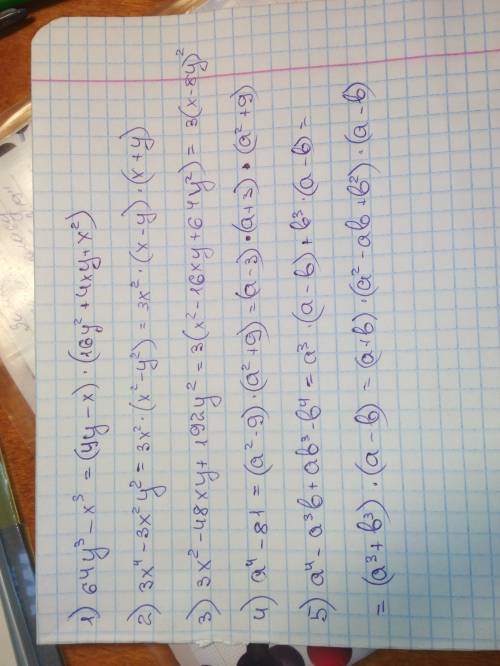 1) 64y³ - x³ = (4y - x) · (16y² + 4xy + x²)
2) 3x⁴ - 3x²y² = 3x² · (x² - y²) = 3x² · (x - y) · (x + y)
3) 3x² - 48xy + 192y² = 3(x² - 16xy + 64y²) = 3(x - 8y)²
4) a⁴ - 81 = (a² - 9) · (a² + 9) = (a - 3) · (a + 3) · (a² + 9)
5) a⁴ - a³b + ab³ - b⁴ = a³ · (a - b) + b³ · (a - b) =
= (a³ + b³) · (a - b) = (a + b) · (a² - ab + b²) · (a - b)